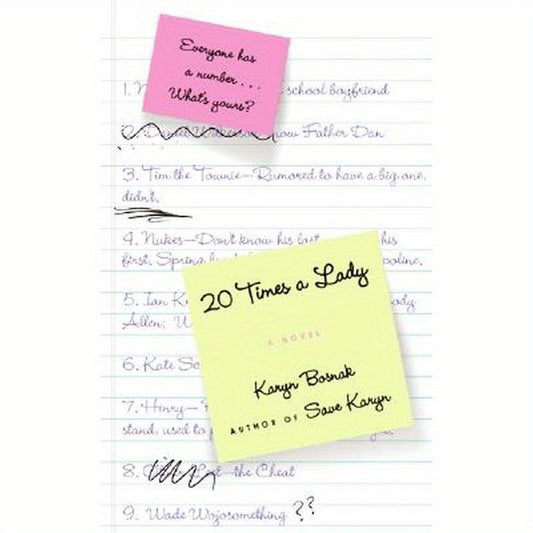 Everyone has
a number . . .
What's yours?
1. school boyfriend
2. now Father Dan
3. Tim the Townie—Rumored to have a big one,
didn't.
4. Nukes—Don't know his last his
first. Spring
5. Ian
Allen;
6. Kate
7. Henry—
stand, used to
8. the Cheat
9. Wade Wojosomething ??
20 Times a Lady
A NOVEL
Karyn Bosnak
AUTHOR OF Save Karyn